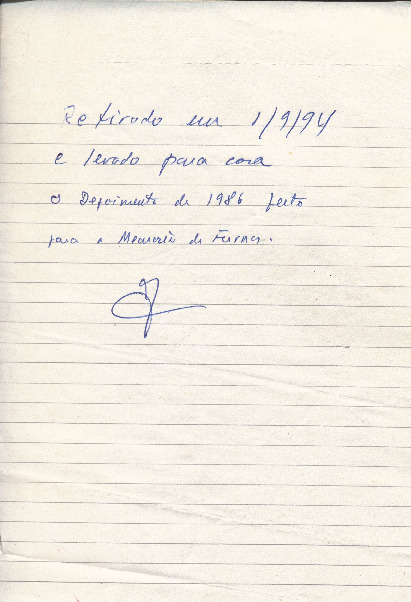 Retirado em 1/9/94
e levado para casa
o Depoimento de 1986 feito
para a Memória de Furnas.